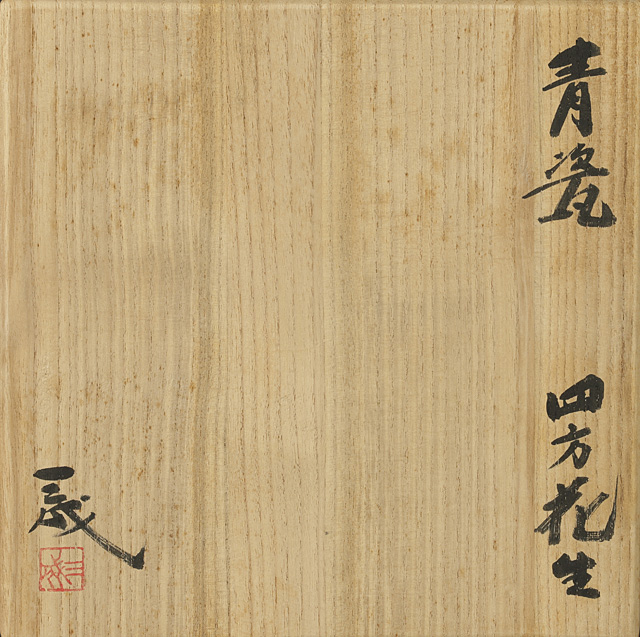 青瓷
四方花生
三成